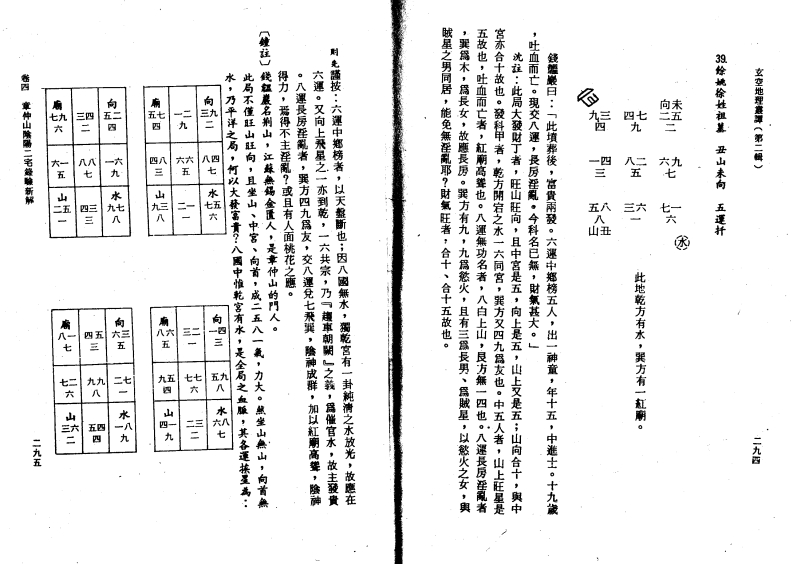 玄空地理叢譚（第二輯）
39.餘姚徐姓祖墓　丑山未向　五運扦
九三 四　四七 九　未向 二五 二
一四 三　八二 五　六九 七
五八 八 山丑　三六 一　七一 六 水
此地乾方有水，巽方有一紅廟。
錢韞巖曰：「此墳葬後，富貴兩發。六運中鄉榜五人，出一神童，年十五，中進士。十九歲
，吐血而亡。現交八運，長房淫亂。今科名已無，財氣甚大。」
沈註：此局大發財丁者，旺山旺向，且中宮是五，向上是五，山上又是五；山向合十，與中
宮亦合十故也。發科甲者，乾方開宕之水一六同宮，巽方又四九為友也。中五人者，山上旺星是
五故也，吐血而亡者，紅廟高聳也。八運無功名者，八白上山，艮方無一四也。八運長房淫亂者
，巽為木，為長女，故應長房。巽方有九，九為慾火，且有三為長男、為賊星，以慾火之女，與
賊星之男同居，能免無淫亂耶？財氣旺者，合十、合十五故也。
二九四
則先謹按：六運中鄉榜者，以天盤斷也；因八國無水，獨乾宮有一卦純清之水放光，故應在
六運。又向上飛星之一亦到乾，一六共宗，乃『趨車朝闕』之義，為催官水，故主發貴
。八運長房淫亂者，巽方四九為友，交八運兌七飛巽，陰神成群，加以紅廟高聳，陰神
得力，焉得不主淫亂？或且有人面桃花之應。
〔鐘註〕錢韞巖名荊山，江蘇無錫金匱人，是章仲山的門人。
此局不僅旺山旺向，且坐山、中宮、向首，成二五八一氣，力大。然坐山無山，向首無
水，乃平洋之局，何以大發富貴？八國中惟乾宮有水，是全局之血脈，其各運挨星為：
廟 五七 四　一二 九　向 三九 二
四八 三　六六 五　八四 七
山 九三 八　二一 一　水 七五 六
向 五二 四　三四 二　廟 七九 六
六一 五　八八 七　一六 九
山 二五 一　四三 三　水 九七 八
向 一四 三　三二 一　廟 八六 五
九五 四　七七 六　五九 八
山 四一 九　二三 二　水 六八 七
廟 八一 七　四五 三　向 六三 五
七二 六　九九 八　二七 一
山 三六 二　五四 四　水 一八 九
卷四　章仲山陰陽二宅錄驗新解
二九五